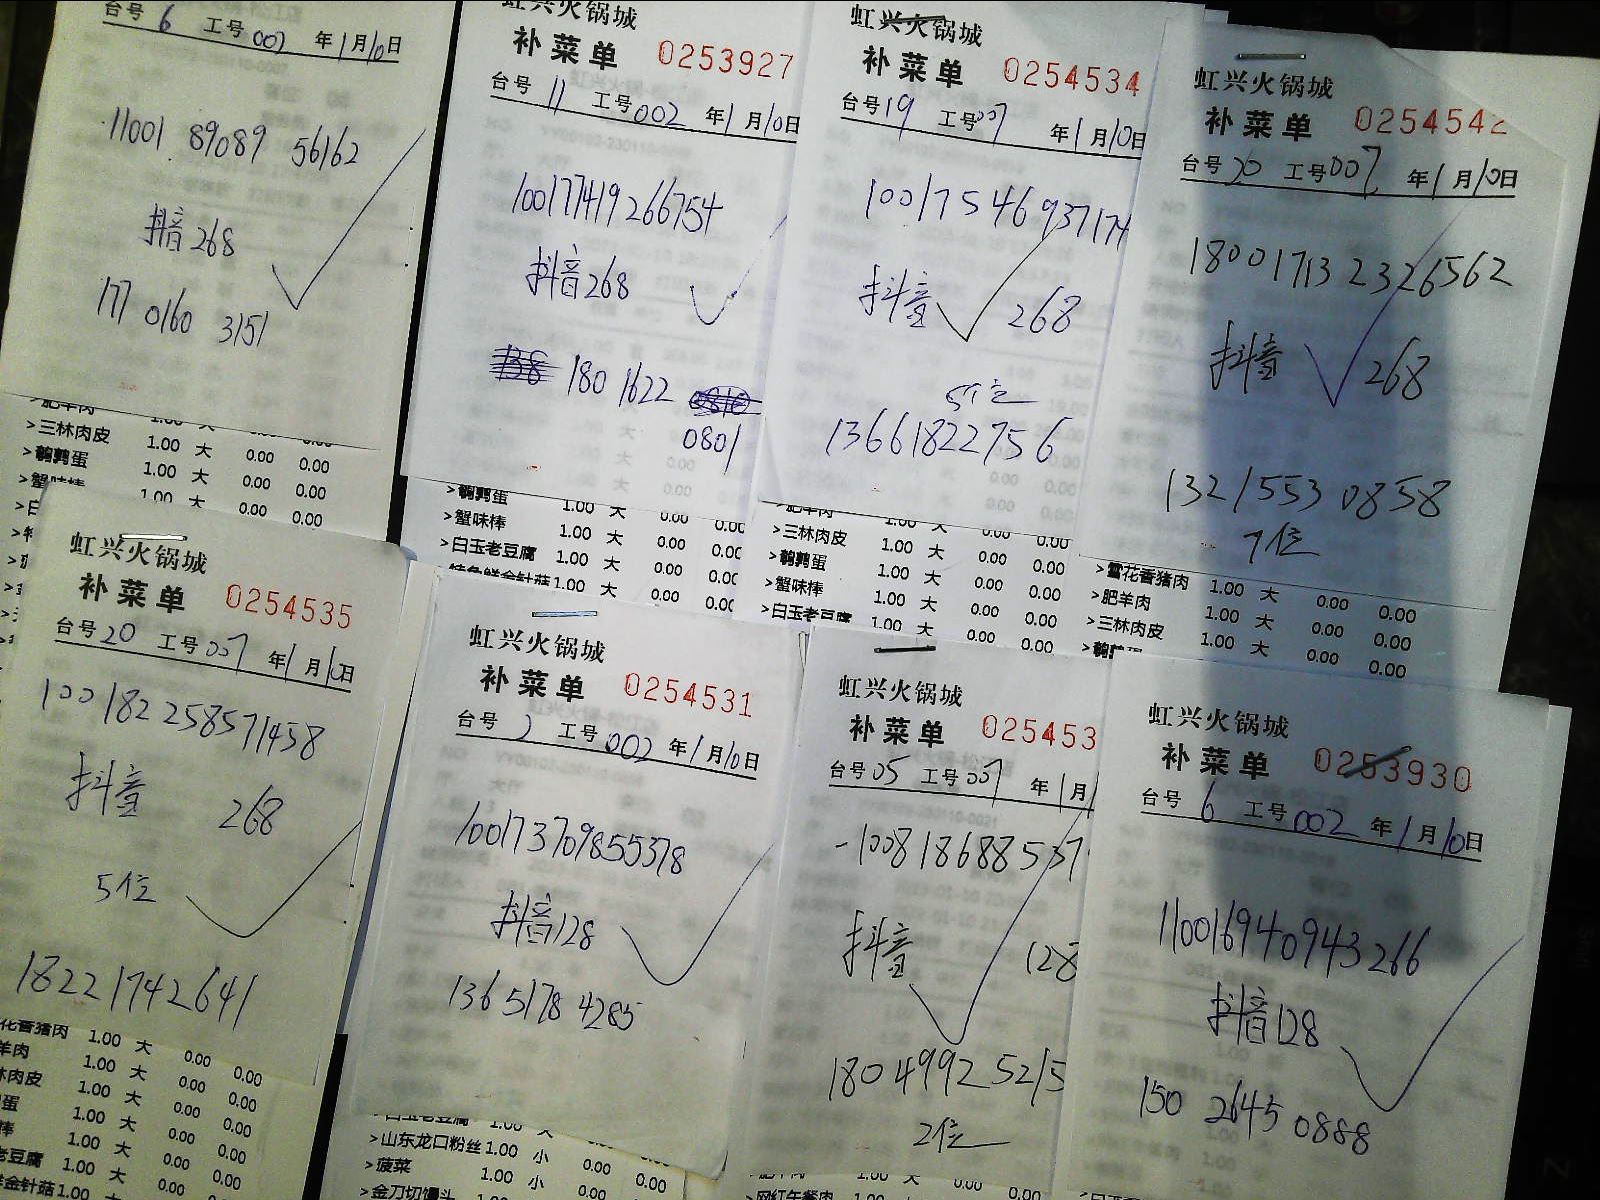 台号 6 工号 007 年 1 月 10 日
11001 89089 56162
抖音 268
177 0160 3151
>三林肉皮 1.00 大 0.00 0.00
>鹌鹑蛋 1.00 大 0.00 0.00
>蟹味棒 1.00 大 0.00 0.00
虹兴火锅城
补菜单 0253927
台号 11 工号 002 年 1 月 10 日
100177419266754
抖音 268
138 180 1622 0810
0801
>鹌鹑蛋 1.00 大 0.00 0.00
>蟹味棒 1.00 大 0.00 0.00
>白玉老豆腐 1.00 大 0.00 0.00
虹兴火锅城
补菜单 0254534
台号 19 工号 007 年 1 月 10 日
10017546937174
抖音 268
5位
13661822756
>肥羊肉 1.00 大 0.00 0.00
>三林肉皮 1.00 大 0.00 0.00
>鹌鹑蛋 1.00 大 0.00 0.00
>蟹味棒 1.00 大 0.00 0.00
>白玉老豆腐 1.00 大 0.00 0.00
虹兴火锅城
补菜单 0254542
台号 20 工号 007 年 1 月 10 日
18001713 2326562
抖音 268
1321553 0858
7位
>雪花香猪肉 1.00 大 0.00 0.00
>肥羊肉 1.00 大 0.00 0.00
>三林肉皮 1.00 大 0.00 0.00
虹兴火锅城
补菜单 0254535
台号 20 工号 007 年 1 月 10 日
100182258571458
抖音 268
5位
18221742641
花香猪肉 1.00 大 0.00 0.00
羊肉 1.00 大 0.00 0.00
林肉皮 1.00 大 0.00 0.00
蛋 1.00 大 0.00 0.00
棒 1.00 大 0.00 0.00
老豆腐 1.00 大 0.00 0.00
鲜金针菇 1.00 大 0.00 0.00
虹兴火锅城
补菜单 0254531
台号 2 工号 002 年 1 月 10 日
100173709855378
抖音 128
1365178 4285
>白玉老豆腐 1.00 大 0.00 0.00
>山东龙口粉丝 1.00 小 0.00 0.00
>菠菜 1.00 小 0.00 0.00
>金刀切馒头 1.00 小 0.00 0.00
虹兴火锅城
补菜单 025453
台号 05 工号 007 年 1 月
-100818688537
抖音 128
180 4992 5215
2位
虹兴火锅城
补菜单 0253930
台号 6 工号 002 年 1 月 10 日
110016940943266
抖音 128
150 2645 0888